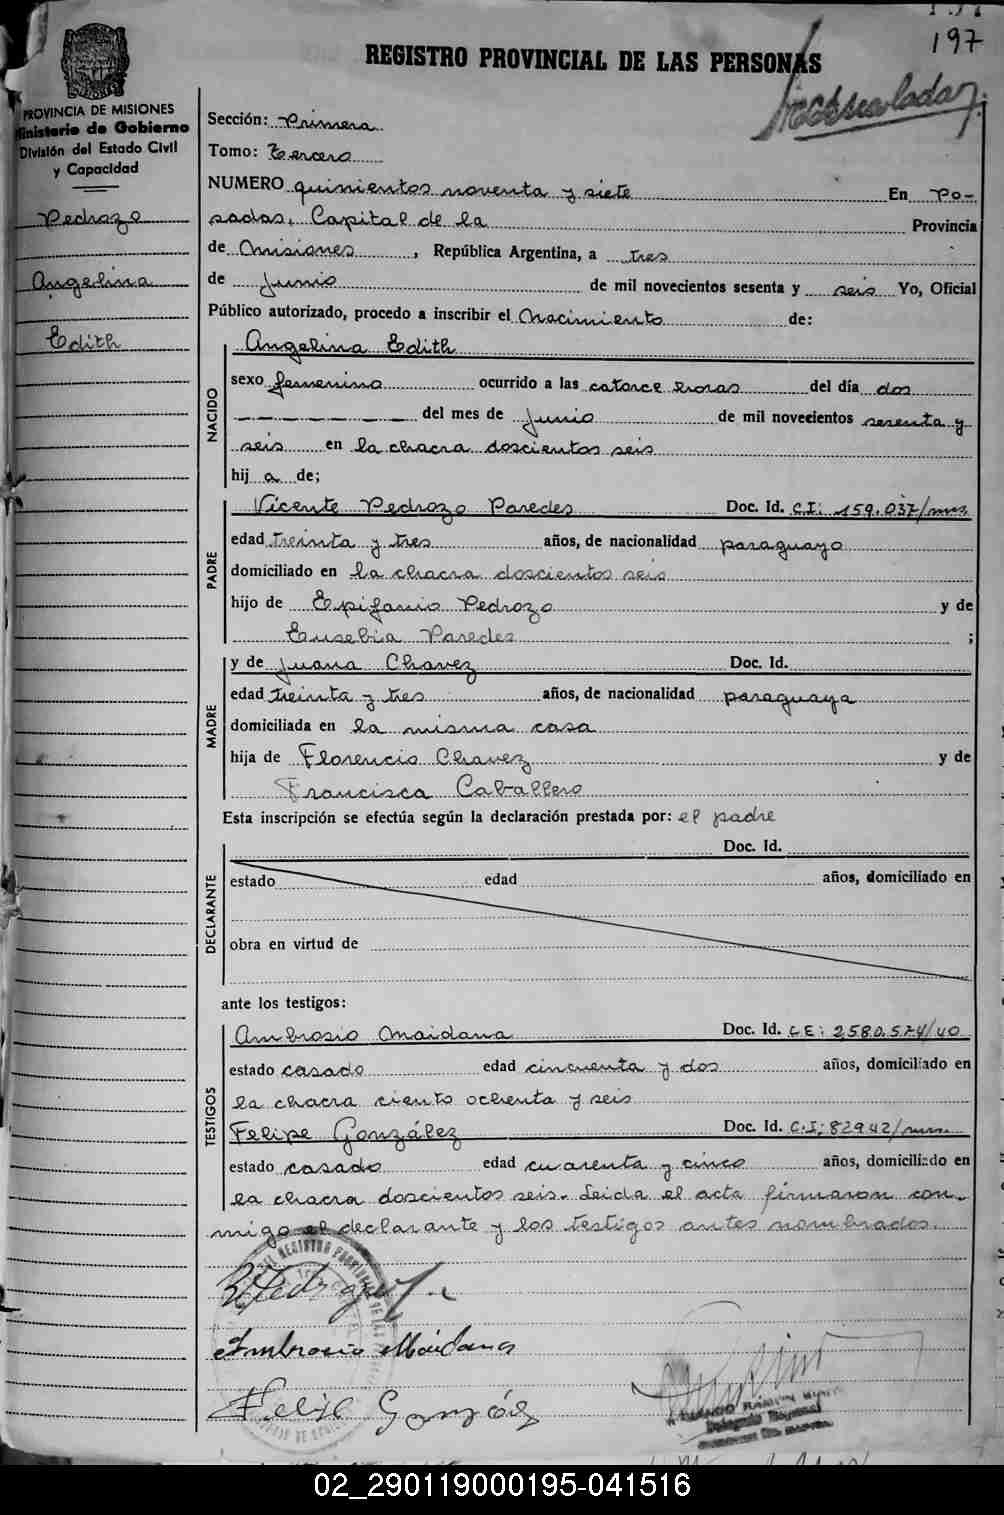 197
REGISTRO PROVINCIAL DE LAS PERSONAS
PROVINCIA DE MISIONES
Ministerio de Gobierno
División del Estado Civil
y Capacidad
Pedrozo
Angelina
Edith
Sección: Primera
Tomo: Tercero
NUMERO quinientos noventa y siete En Po-
sadas, Capital de la Provincia
de Misiones, República Argentina, a tres
de Junio de mil novecientos sesenta y seis Yo, Oficial
Público autorizado, procedo a inscribir el Nacimiento de:
NACIDO
Angelina Edith
sexo femenino ocurrido a las catorce horas del día dos
del mes de Junio de mil novecientos sesenta y
seis en la chacra doscientos seis
hij a de;
PADRE
Vicente Pedrozo Paredes Doc. Id. C.I: 159.037/mns.
edad treinta y tres años, de nacionalidad paraguayo
domiciliado en la chacra doscientos seis
hijo de Epifanio Pedrozo y de
Eusebia Paredes ;
MADRE
y de Juana Chavez Doc. Id.
edad treinta y tres años, de nacionalidad paraguaya
domiciliada en la misma casa
hija de Florencio Chavez y de
Francisca Caballero
Esta inscripción se efectúa según la declaración prestada por: el padre
DECLARANTE
Doc. Id.
estado edad años, domiciliado en
obra en virtud de
ante los testigos:
TESTIGOS
Ambrosio Maidana Doc. Id. C.E: 2580.574/40
estado casado edad cincuenta y dos años, domiciliado en
la chacra ciento ochenta y seis
Felipe González Doc. Id. C.I: 82942/mns.
estado casado edad cuarenta y cinco años, domiciliado en
la chacra doscientos seis. Leida el acta firmaron con-
migo el declarante y los testigos antes nombrados.
Ambrosio Maidana
02_290119000195-041516